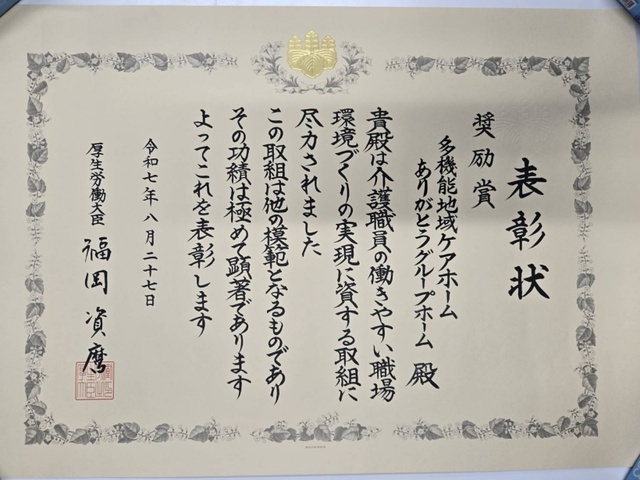 表彰状
奨励賞
多機能地域ケアホーム
ありがとうグループホーム 殿
貴殿は介護職員の働きやすい職場
環境づくりの実現に資する取組に
尽力されました
この取組は他の模範となるものであり
その功績は極めて顕著であります
よってこれを表彰します
令和七年八月二十七日
厚生労働大臣 福岡資麿